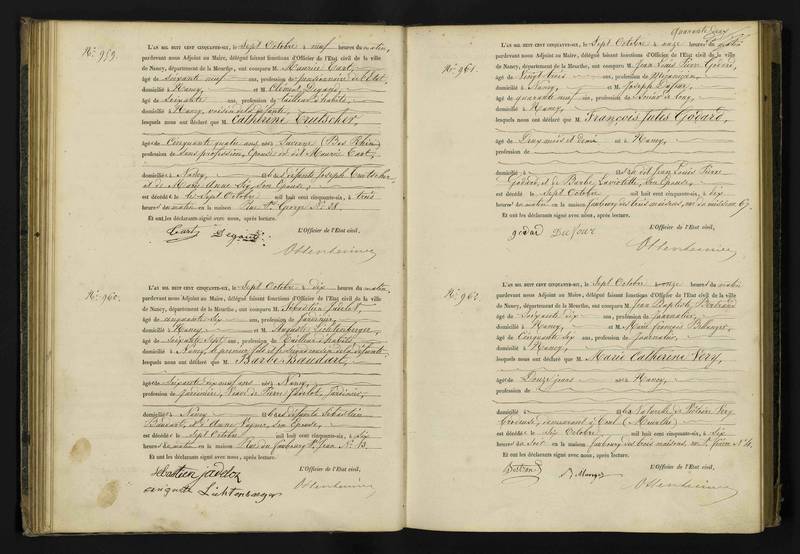 No. 959.
L'AN MIL HUIT CENT CINQUANTE-SIX, le Sept Octobre à neuf heures du matin,
pardevant nous Adjoint au Maire, délégué faisant fonctions d'Officier de l'Etat civil de la ville
de Nancy, département de la Meurthe, ont comparu M. Maurice Cart,
âgé de soixante neuf ans, profession de pensionnaire de l'Etat,
domicilié à Nancy, et M. Clément Degand,
âgé de soixante ans, profession de tailleur d'habits,
domicilié à Nancy, voisin de la défunte,
lesquels nous ont déclaré que Catherine Crutscher
âgée de Cinquante quatre ans, née à Saverne (Bas Rhin)
profession de sans profession, Epouse du dit Maurice Cart,
domiciliée à Nancy, défunts Joseph Crutscher
et de Marie Anne Six, son Epouse,
est décédée le sept Octobre mil huit cent cinquante-six, à trois
heures du matin en la maison Rue St. George No. 88.
Et ont les déclarants signé avec nous, après lecture.
L'Officier de l'Etat civil,
Cart Degand
Ottenheimer
No. 960.
L'AN MIL HUIT CENT CINQUANTE-SIX, le Sept Octobre à dix heures du matin,
pardevant nous Adjoint au Maire, délégué faisant fonctions d'Officier de l'Etat civil de la ville
de Nancy, département de la Meurthe, ont comparu M. Sébastien
âgé de cinquante six ans, profession de Jardinier,
domicilié à Nancy et M. Auguste Lichtenberger,
âgé de soixante sept ans, profession de Tailleur d'habits,
domicilié à Nancy, le premier fils et le second voisin de la défunte,
lesquels nous ont déclaré que Barbe Baudart,
âgée de soixante dix neuf ans née à Nancy,
profession de Jardinière, Veuve de Pierre Jardinier,
domiciliée à Nancy défunts Sébastien
Baudart, et d'Anne son Epouse,
est décédée le sept Octobre mil huit cent cinquante-six, à six
heures du matin en la maison Rue du faubourg St. Jean No. 13.
Et ont les déclarants signé avec nous, après lecture.
L'Officier de l'Etat civil,
sébastien
auguste Lichtenberger
Ottenheimer
No. 961.
L'AN MIL HUIT CENT CINQUANTE-SIX, le Sept Octobre à onze heures du matin
pardevant nous Adjoint au Maire, délégué faisant fonctions d'Officier de l'Etat civil de la ville
de Nancy, département de la Meurthe, ont comparu M. Jean Louis Pierre Godard,
âgé de Vingt trois ans, profession de Mécanicien,
domicilié à Nancy, et M. Joseph Dufour,
âgé de quarante neuf ans, profession de long,
domicilié à Nancy,
lesquels nous ont déclaré que François Jules Godard,
âgé de Deux mois et demi né à Nancy,
profession de
domicilié à fils du dit Jean Louis Pierre
Godard, et de Barbe Laviolette, son Epouse,
est décédé le sept Octobre mil huit cent cinquante-six, à dix
heures du matin en la maison faubourg des trois maisons, 67.
Et ont les déclarants signé avec nous, après lecture.
L'Officier de l'Etat civil,
godard Dufour
Ottenheimer
No. 962.
L'AN MIL HUIT CENT CINQUANTE-SIX, le Sept Octobre à onze heures du matin
pardevant nous Adjoint au Maire, délégué faisant fonctions d'Officier de l'Etat civil de la ville
de Nancy, département de la Meurthe, ont comparu M. Jean Baptiste Bertrand
âgé de Soixante dix ans, profession de Journalier,
domicilié à Nancy, et M. François
âgé de Cinquante six ans, profession de Journalier,
domicilié à Nancy,
lesquels nous ont déclaré que Marie Catherine Véry,
âgée de Douze jours née à Nancy,
profession de
domiciliée à fille Naturelle de Véry
demeurant à Toul (Meurthe)
est décédée le six Octobre mil huit cent cinquante-six, à six
heures du soir en la maison faubourg des trois maisons, No. 4.
Et ont les déclarants signé avec nous, après lecture.
L'Officier de l'Etat civil,
Bertrand
Ottenheimer